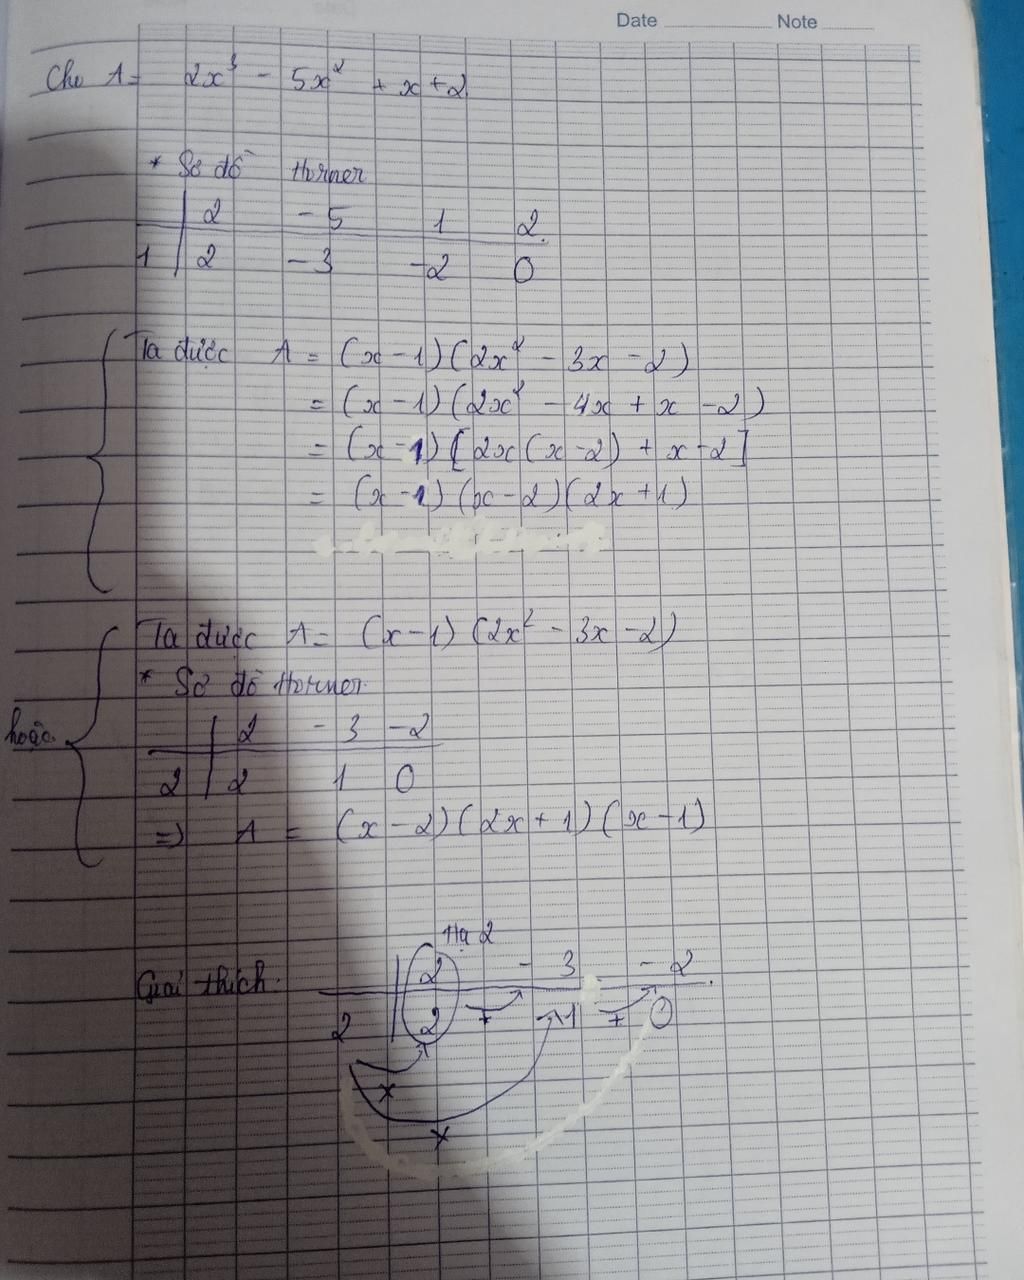 Date Note
Cho A = 2x³ - 5x² + x + 2
* Sơ đồ Horner
2 - 5 1 2
1 2 - 3 -2 0
Ta được A = (x - 1)(2x² - 3x - 2)
= (x - 1)(2x² - 4x + x - 2)
= (x - 1)[2x(x - 2) + x - 2]
= (x - 1)(x - 2)(2x + 1)
hoặc
Ta được A = (x - 1)(2x² - 3x - 2)
* Sơ đồ Horner
2 - 3 - 2
2 2 1 0
=> A = (x - 2)(2x + 1)(x - 1)
Hạ 2
Giải thích: 2 - 3 - 2
2 2 + 1 + 0
x
x